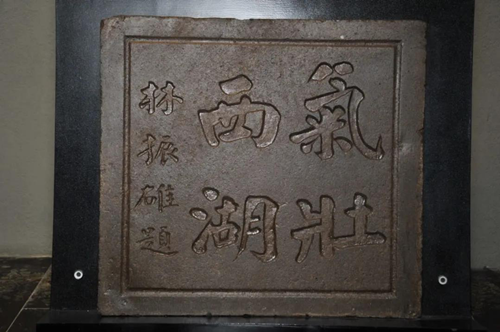 氣壯
西湖
林振雄題